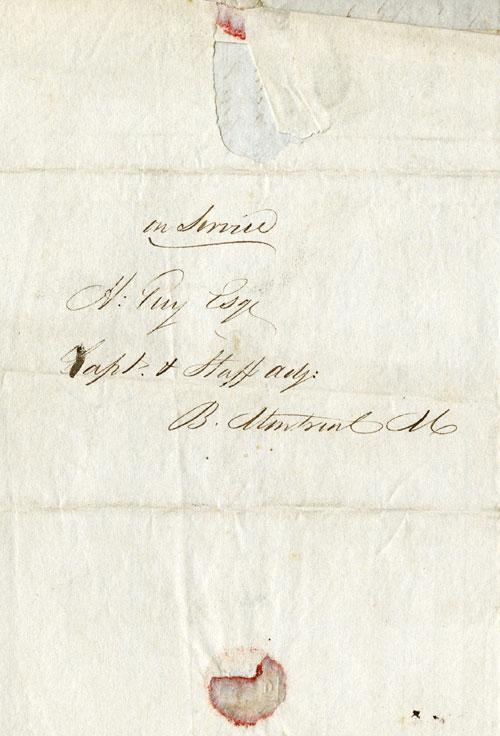 on Service
H: Guy Esqr
Capt. & Staff adj:
B. Montreal M